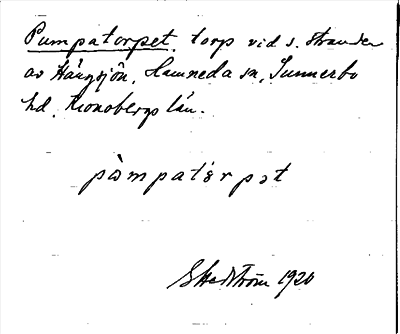 Pumpatorpet, torp vid s. stranden
av Hängsjön, Hamneda sn, Sunnerbo
hd, Kronobergs län.
pàmpatɷ́rpət
EHedström 1920